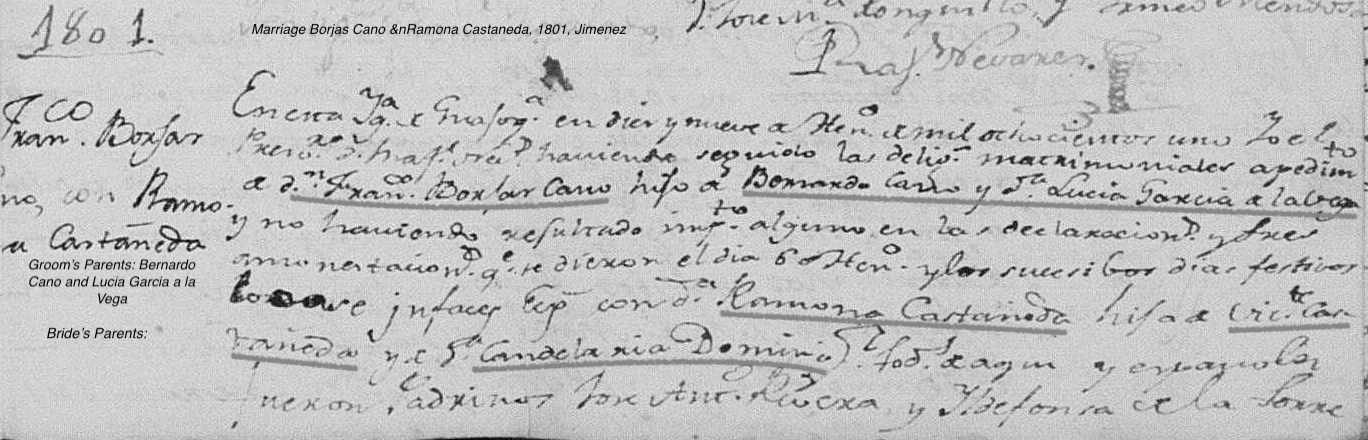 1801.
Marriage Borjas Cano &nRamona Castaneda, 1801, Jimenez
y
Fran.co Borjas
no, con Ramo-
a Castañeda
Groom's Parents: Bernardo
Cano and Lucia Garcia a la
Vega
Bride's Parents:
En esta Yg.a en diez y nueve de Hen.o de mil ochocientos uno Yo el
haviendo seguido las delig.s matrimoniales a pedim.to
de d.n Fran.co Borjas Cano hijo de Bernardo Cano y d.a Lucia Garcia de la Vega
y no haviendo resultado imp.to alguno en las declaracion.s y tres
amonestacion.s q.e se dieron el dia 6 de Hen.o y los dias festivos
in facie con d.a Ramona Castañeda hija de Vic.te Cas-
tañeda y de d.a Candelaria tod.s de aqui y españoles
fueron Padrinos Jose Ant.o Rivera y Yldefonsa de la Torre